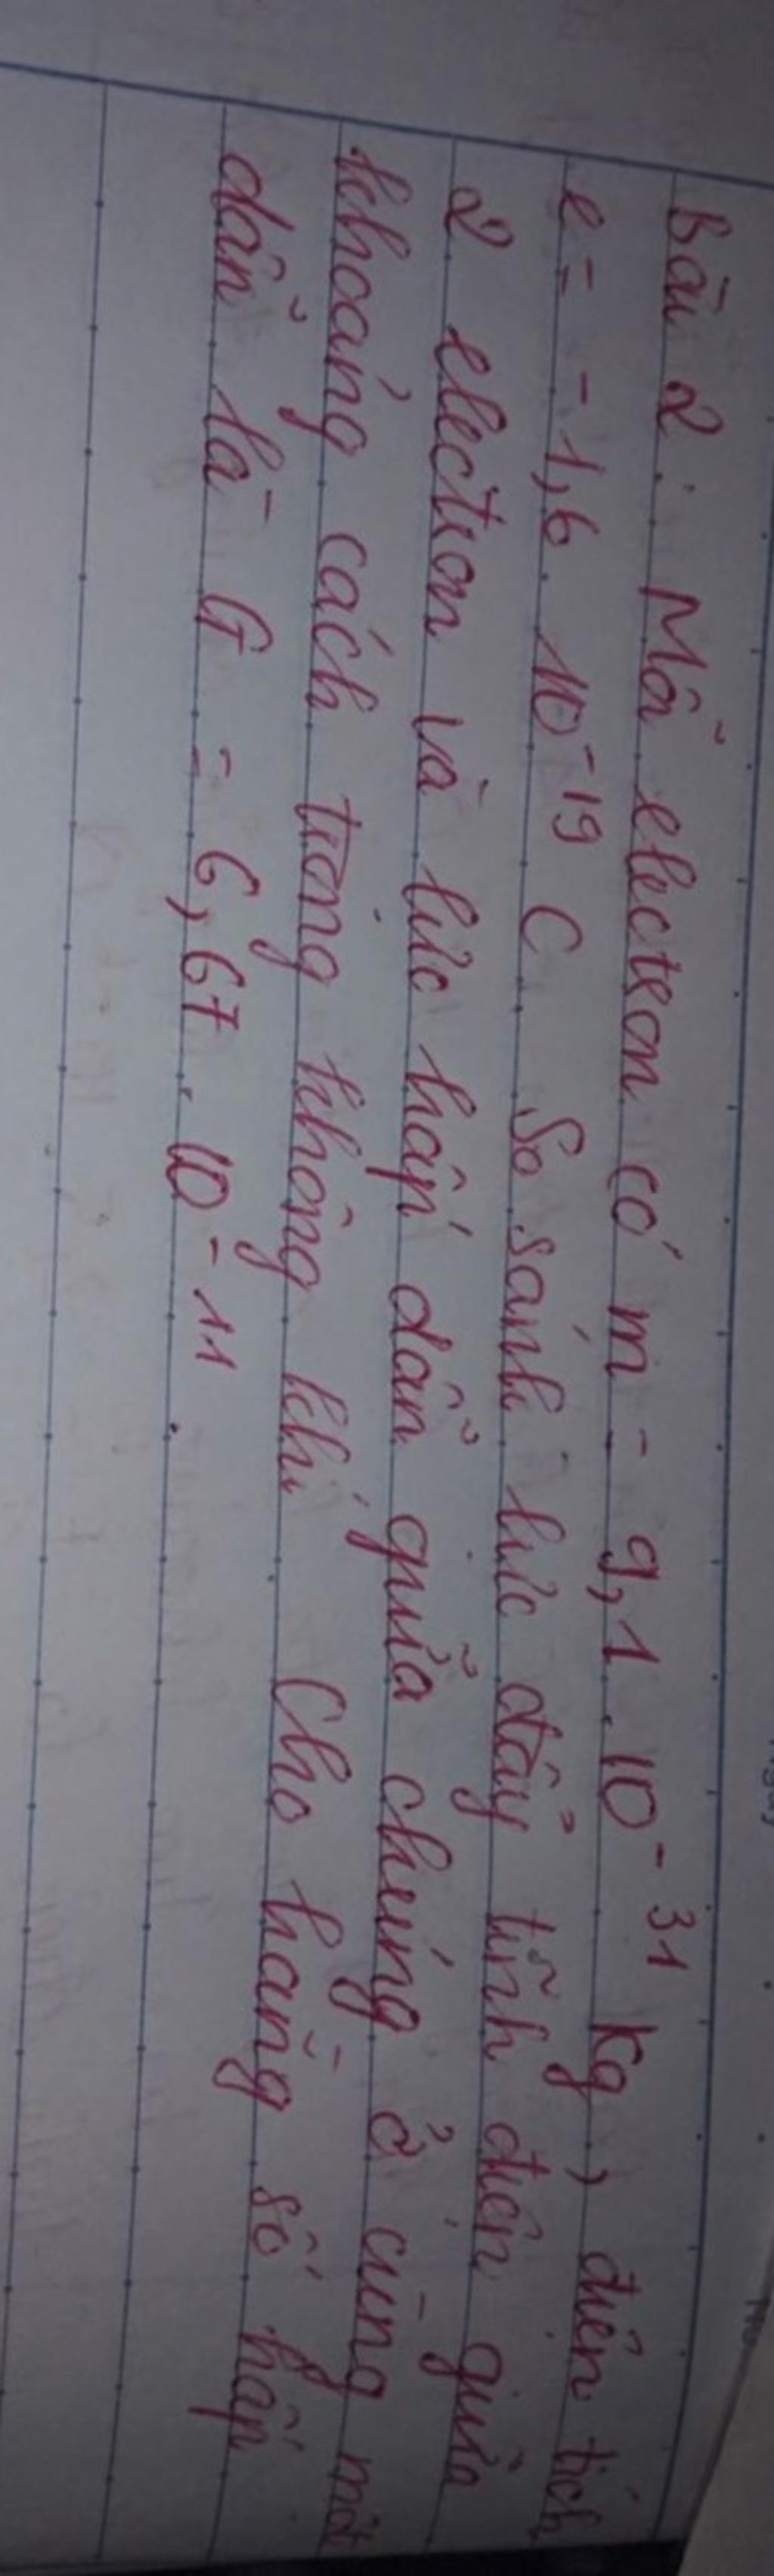 Bài 2: Mỗi electron có m = 9,1.10⁻³¹ kg, điện tích
e = -1,6.10⁻¹⁹ C. So sánh lực đẩy tĩnh điện giữa
2 electron và lực hấp dẫn giữa chúng ở cùng một
khoảng cách trong không khí. Cho hằng số hấp
dẫn là G = 6,67.10⁻¹¹.